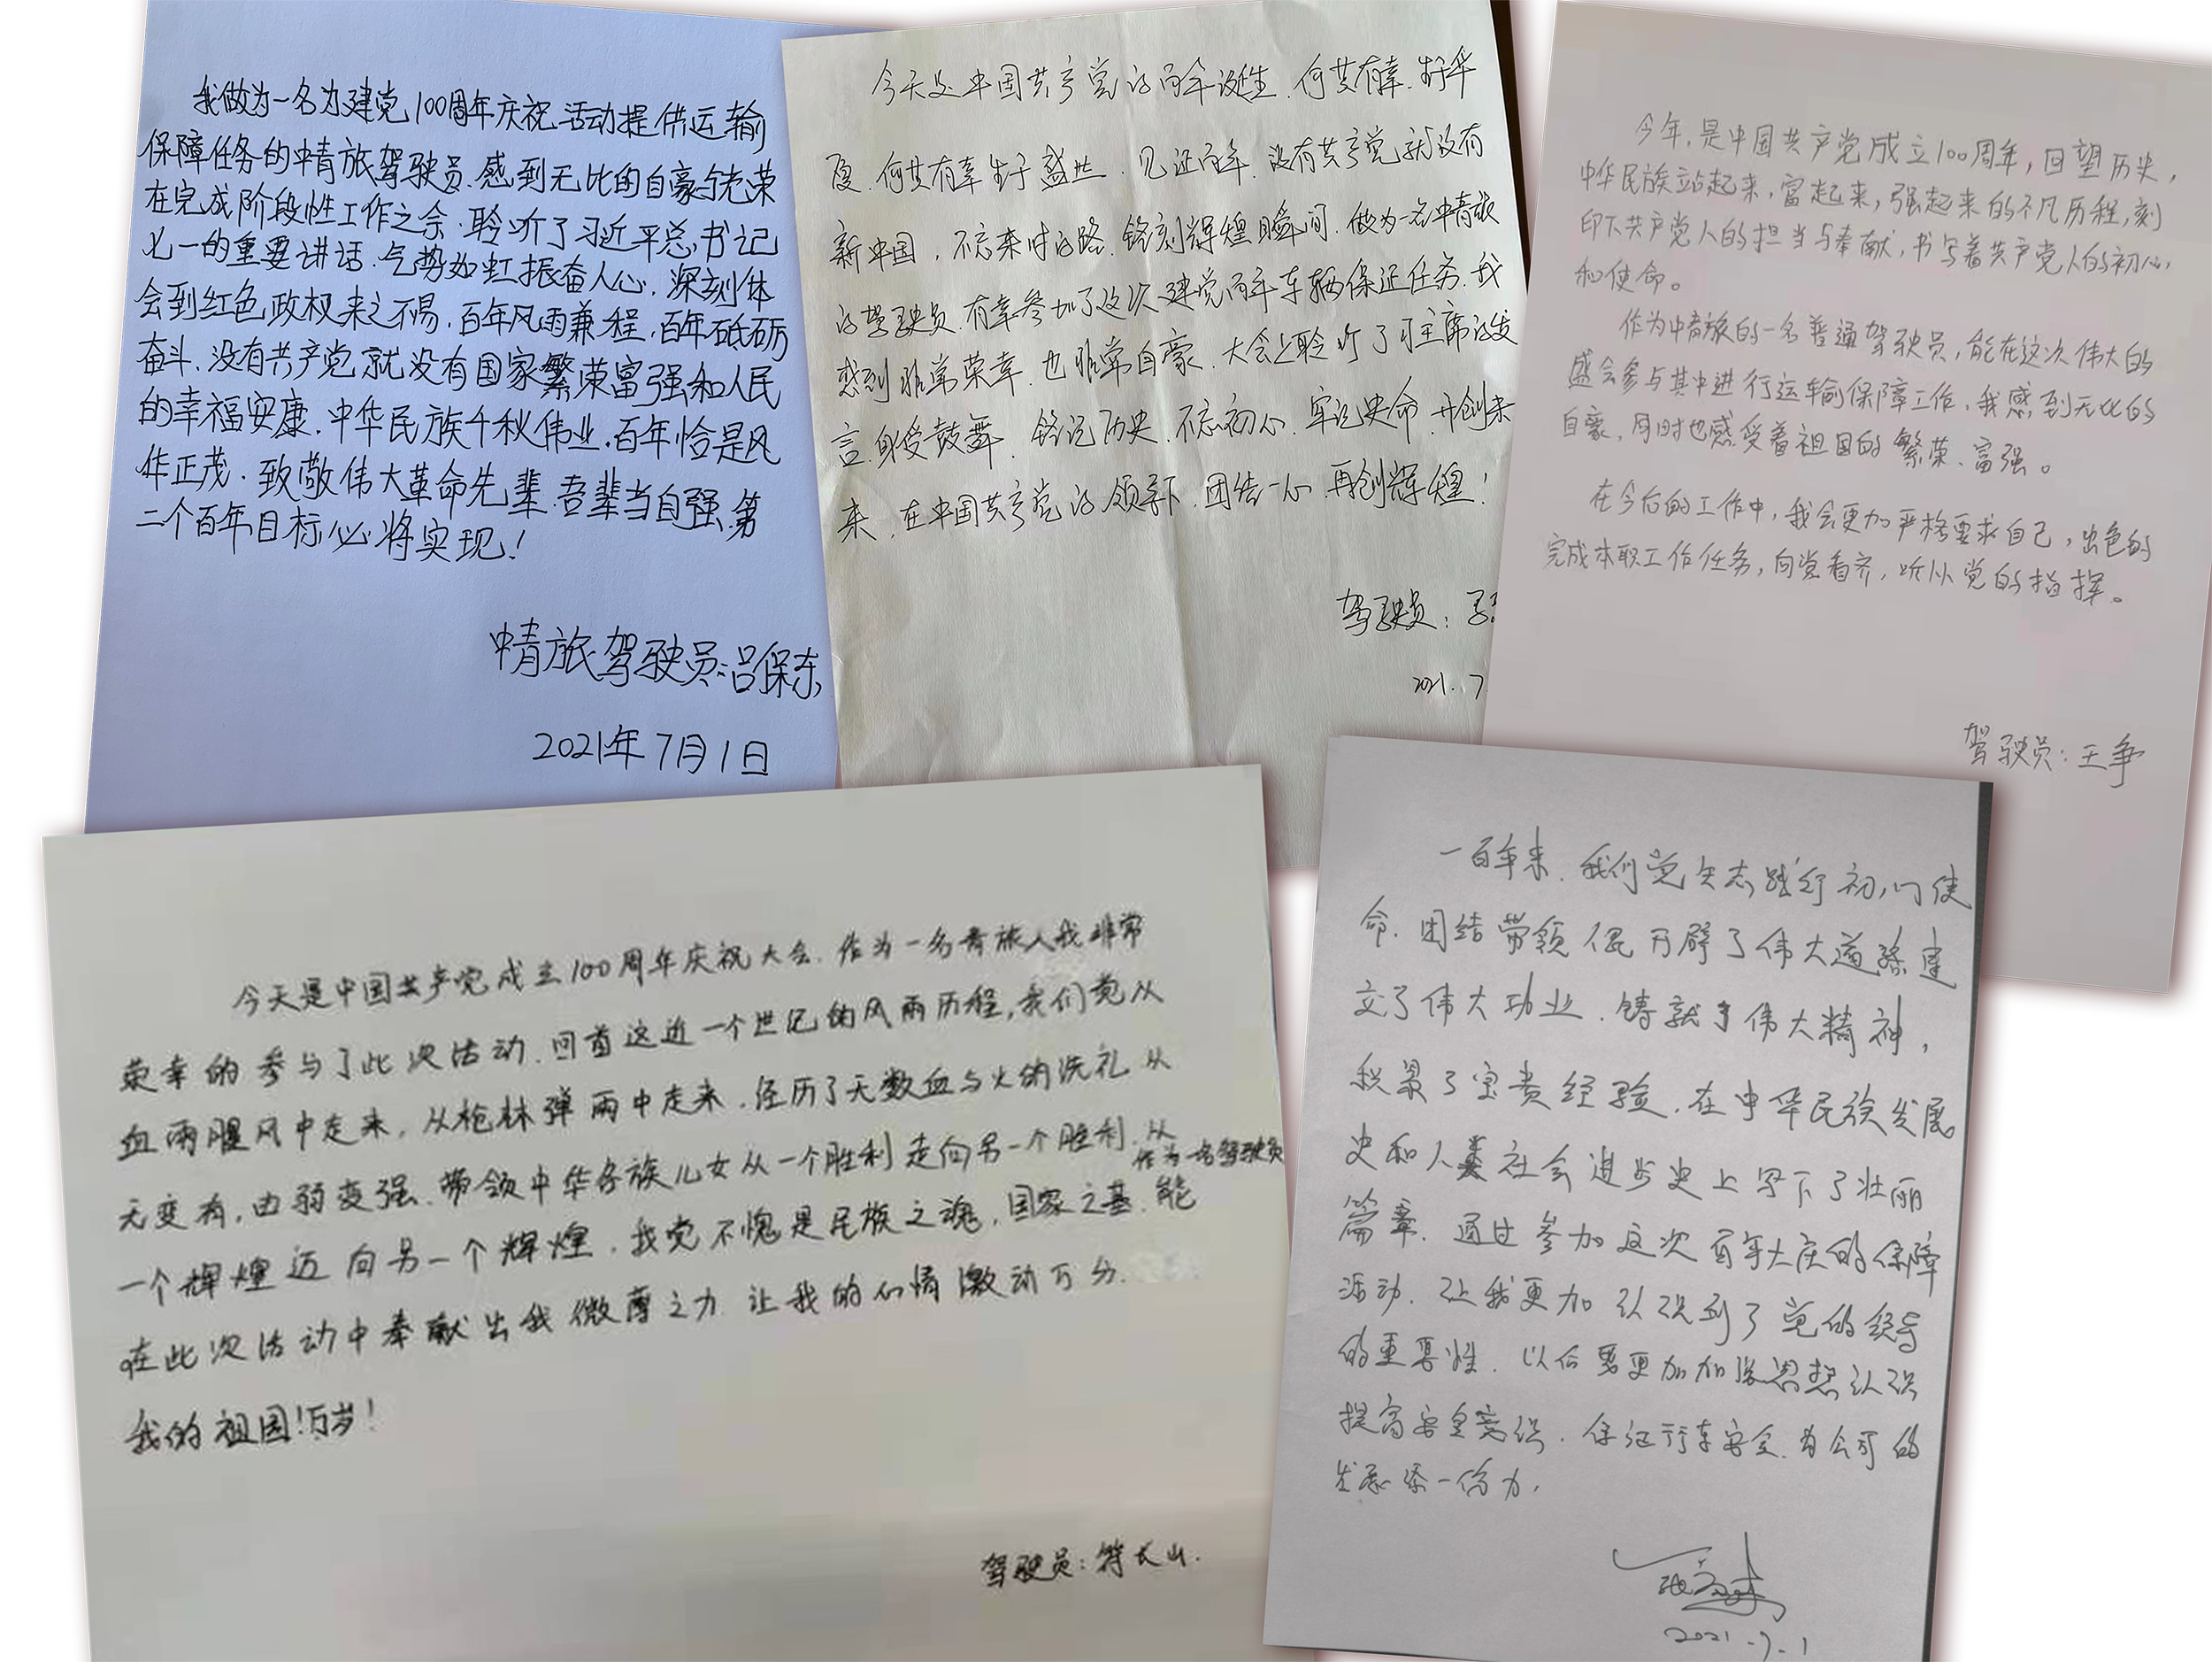 我做为一名为建党100周年庆祝活动提供运输
保障任务的中青旅驾驶员.感到无比的自豪与光荣
在完成阶段性工作之余.聆听了习近平总书记
七一的重要讲话.气势如虹振奋人心.深刻体
会到红色政权来之不易.百年风雨兼程,百年砥砺
奋斗.没有共产党就没有国家繁荣富强和人民
的幸福安康.中华民族千秋伟业.百年恰是风
华正茂.致敬伟大革命先辈.吾辈当自强.第
二个百年目标必将实现!
中青旅驾驶员:吕保东
2021年7月1日
今天是中国共产党的百年诞生.何其有幸.生于华
夏.何其有幸生于盛世.见证百年.没有共产党就没有
新中国,不忘来时的路.铭刻辉煌瞬间.做为一名中青旅
的驾驶员.有幸参加了这次建党百年车辆保证任务.我
感到非常荣幸.也非常自豪.大会上聆听了习主席的发
言.身受鼓舞.铭记历史.不忘初心.牢记使命.开创未
来.在中国共产党的领导下.团结一心.再创辉煌!
驾驶员:
2021.7
今年,是中国共产党成立100周年,回望历史,
中华民族站起来,富起来,强起来的不凡历程,刻
印下共产党人的担当与奉献,书写着共产党人的初心
和使命。
作为中青旅的一名普通驾驶员,能在这次伟大的
盛会参与其中进行运输保障工作,我感到无比的
自豪,同时也感受着祖国的繁荣、富强。
在今后的工作中,我会更加严格要求自己,出色的
完成本职工作任务,向党看齐,听从党的指挥。
驾驶员:王争
今天是中国共产党成立100周年庆祝大会.作为一名青旅人我非常
荣幸的参与了此次活动.回首这近一个世纪的风雨历程,我们党从
血雨腥风中走来,从枪林弹雨中走来.经历了无数血与火的洗礼从
无变有,由弱变强.带领中华各族儿女从一个胜利走向另一个胜利.从
作为一名驾驶员
一个辉煌迈向另一个辉煌.我党不愧是民族之魂,国家之基.能
在此次活动中奉献出我微薄之力让我的心情激动万分.
我的祖国!万岁!
驾驶员:符长山.
一百年来.我们党矢志践行初心使
命.团结带领人民开辟了伟大道路建
立了伟大功业.铸就了伟大精神,
积累了宝贵经验.在中华民族发展
史和人类社会进步史上写下了壮丽
篇章.通过参加这次百年大庆的保障
活动.让我更加认识到了党的领导
的重要性.以后要更加加强思想认识
提高安全意识.保证行车安全.为公司的
发展添一份力.
2021-7.1